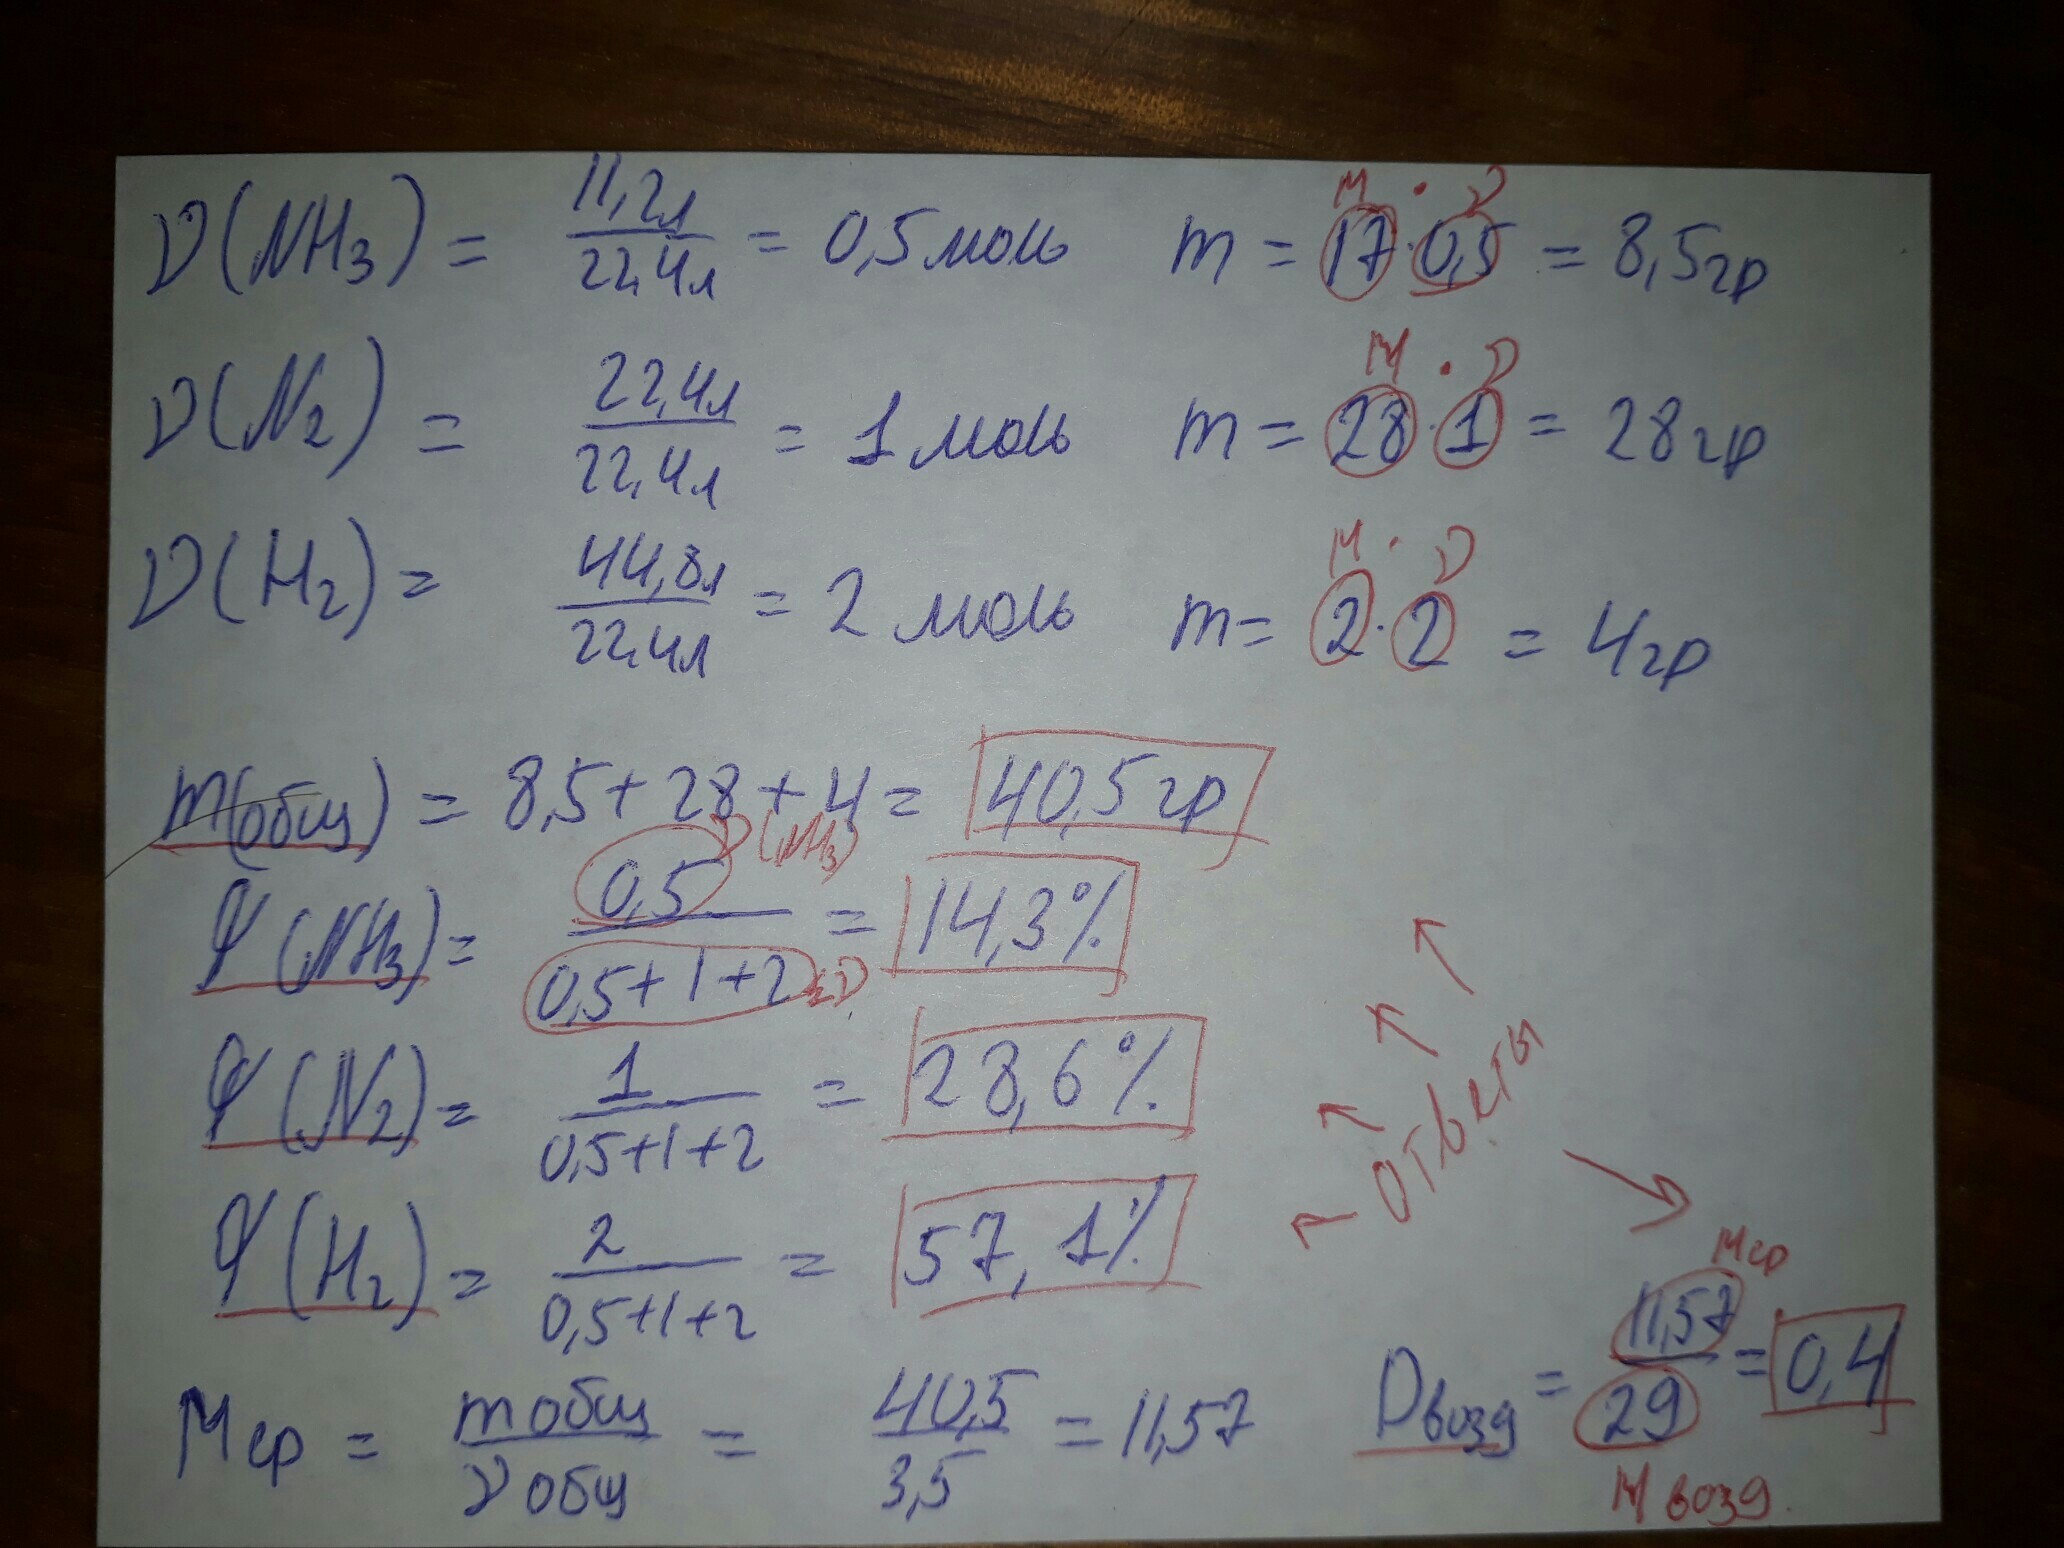 ν(NH₃) = 11,2л/22,4л = 0,5 моль m = 17·0,5 = 8,5гр
M · ν
ν(N₂) = 22,4л/22,4л = 1 моль m = 28·1 = 28гр
M · ν
ν(H₂) = 44,8л/22,4л = 2 моль m = 2·2 = 4гр
M · ν
m(общ) = 8,5+28+4 = 40,5гр
φ(NH₃) = 0,5/0,5+1+2 = 14,3%
ν(NH₃)
Σν
φ(N₂) = 1/0,5+1+2 = 28,6%
φ(H₂) = 2/0,5+1+2 = 57,1%
ответы
Mср = mобщ/νобщ = 40,5/3,5 = 11,57
Dвозд = 11,57/29 = 0,4
Mср
Mвозд.